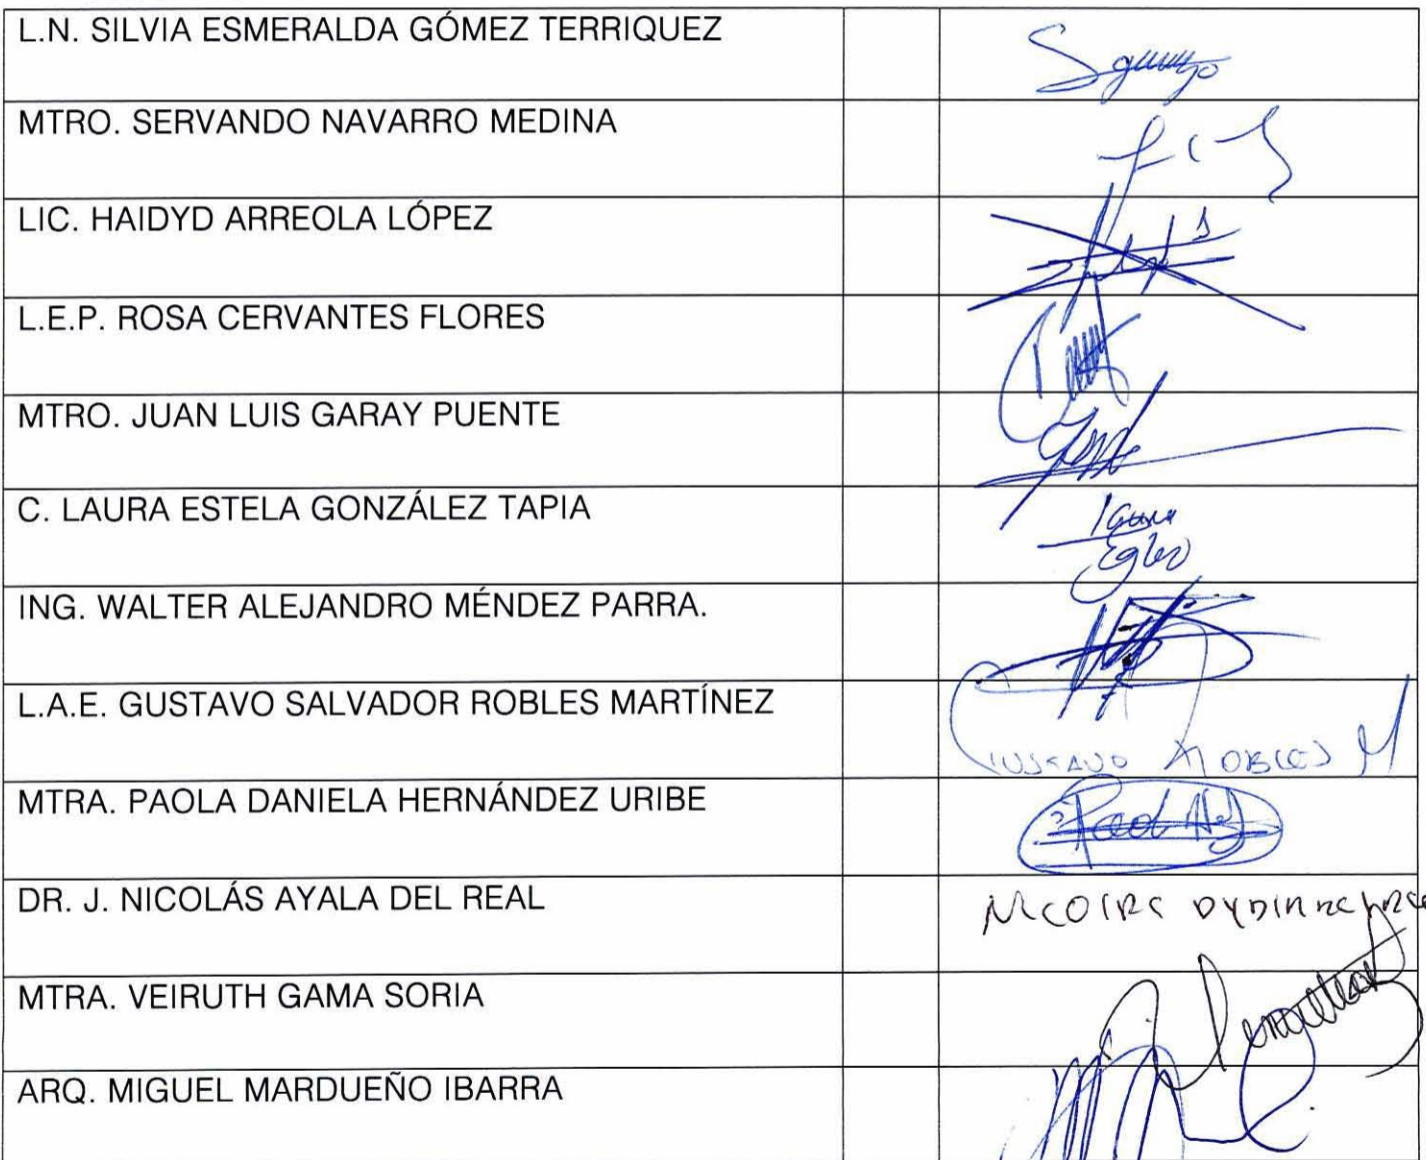 L.N. SILVIA ESMERALDA GÓMEZ TERRIQUEZ
MTRO. SERVANDO NAVARRO MEDINA
LIC. HAIDYD ARREOLA LÓPEZ
L.E.P. ROSA CERVANTES FLORES
MTRO. JUAN LUIS GARAY PUENTE
C. LAURA ESTELA GONZÁLEZ TAPIA
ING. WALTER ALEJANDRO MÉNDEZ PARRA.
L.A.E. GUSTAVO SALVADOR ROBLES MARTÍNEZ
GUSTAVO ROBLES M
MTRA. PAOLA DANIELA HERNÁNDEZ URIBE
DR. J. NICOLÁS AYALA DEL REAL
MTRA. VEIRUTH GAMA SORIA
ARQ. MIGUEL MARDUEÑO IBARRA